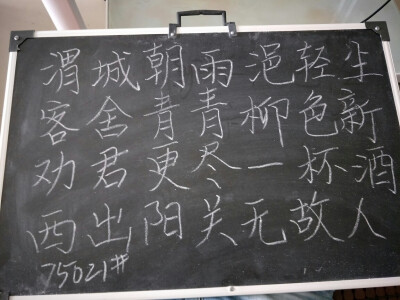 渭城朝雨浥轻尘
客舍青青柳色新
劝君更尽一杯酒
西出阳关无故人
75021#